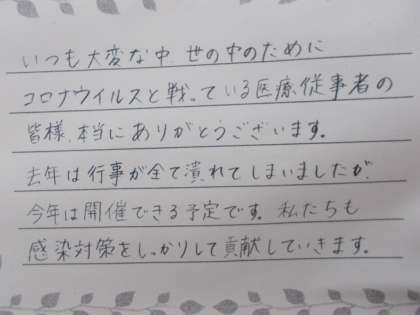 いつも大変な中、世の中のために
コロナウイルスと戦っている医療従事者の
皆様、本当にありがとうございます。
去年は行事が全て潰れてしまいましたが、
今年は開催できる予定です。私たちも
感染対策をしっかりして貢献していきます。